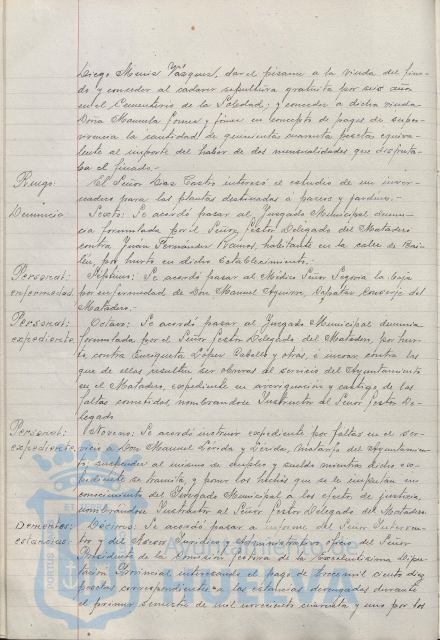 Diego Muñiz Vázquez, dar el pésame a la viuda del fina-
do y conceder al cadáver sepultura gratuita por seis años
en el Cementerio de la Soledad; y conceder a dicha viuda
Doña Manuela Gomez y en concepto de pagas de super-
vivencia la cantidad de quinientas cuarenta pesetas equiva-
lente al importe del haber de dos mensualidades que disfruta-
ba el finado.-
Ruego: El Señor Díaz Castro interesó el estudio de un inver-
nadero para las plantas destinadas a paseos y jardines.-
Denuncia: Sexto: Se acordó pasar al Juzgado Municipal denun-
cia formulada por el Señor Gestor Delegado del Matadero
contra Juán Fernández Ramos, habitante en la calle de Bai-
lén, por hurto en dicho Establecimiento.-
Personal: Séptimo: Se acordó pasar al Médico Señor Segovia la baja
enfermedad. por enfermedad de Don Manuel Aguirre, Capataz Conserje del
Matadero.-
Personal: Octavo: Se acordó pasar al Juzgado Municipal denuncia
expediente. formulada por el Señor Gestor Delegado del Matadero, por hur-
to, contra Enriqueta López Caballo y otras, é incoar contra las
que de ellas resulten ser obreras al servicio del Ayuntamiento
en el Matadero, expediente en averiguación y castigo de las
faltas cometidas, nombrándose Instructor al Señor Gestor De-
legado
Personal: Noveno: Se acordó instruir expediente por faltas en el ser-
expediente. vicio a Don Manuel Lérida y Lérida, Matarife del Ayuntamien-
to, suspender al mismo de empleo y sueldo mientras dicho ex-
pediente se tramita, y poner los hechos que se le imputan en
conocimiento del Juzgado Municipal a los efectos de justicia,
nombrándose Instructor al Señor Gestor Delegado del Matadero
Dementes: Décimo: Se acordó pasar a informe del Señor Interven-
estancias. tor y del Asesor Jurídico Administrativo oficio del Señor
Presidente de la Comisión Gestora de la Excelentísima Dipu-
tación Provincial interesando el pago de trece mil ciento diez
pesetas correspondientes a las estancias devengadas durante
el primer semestre de mil novecientos cuarenta y uno por los
Ayuntamiento de